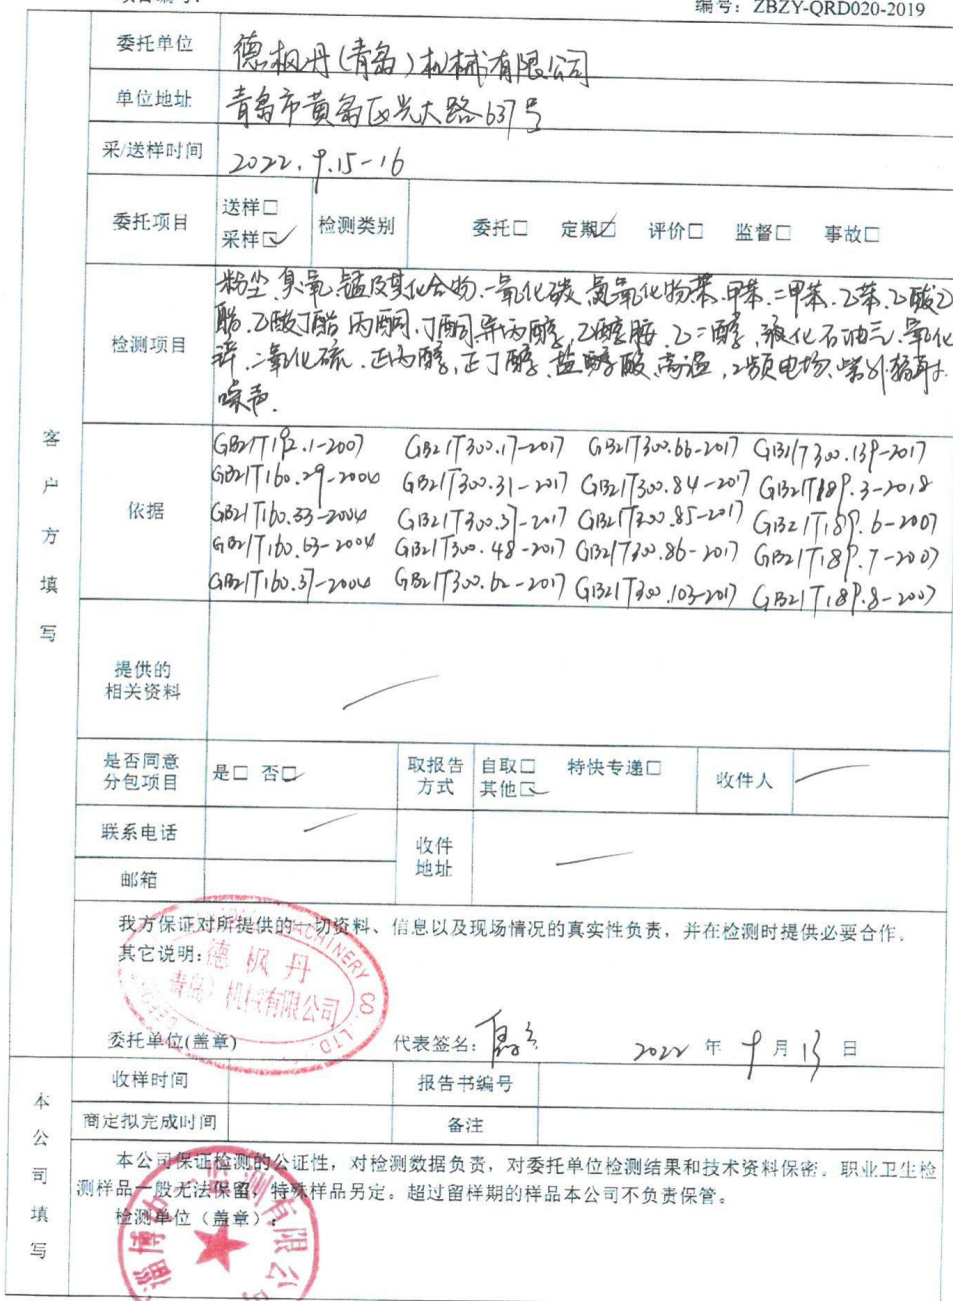 编号：ZBZY-QRD020-2019
委托单位 德枫丹(青岛)机械有限公司
单位地址 青岛市黄岛区光大路637号
采/送样时间 2022.9.15-16
委托项目 送样□ 检测类别 委托□ 定期☑ 评价□ 监督□ 事故□
采样☑
粉尘、臭氧、锰及其化合物、一氧化碳、氮氧化物、苯、甲苯、二甲苯、乙苯、乙酸乙
检测项目 酯、乙酸丁酯、丙酮、丁酮、异丙醇、乙醇胺、乙二醇、液化石油气、氧化
锌、二氧化硫、正丙醇、正丁醇、盐酸、高温、工频电场、紫外辐射、
噪声.
客户方填写
依据
GBZ/T192.1-2007 GBZ/T300.17-2017 GBZ/T300.66-2017 GBZ/T300.139-2017
GBZ/T160.29-2004 GBZ/T300.31-2017 GBZ/T300.84-2017 GBZ/T189.3-2018
GBZ/T160.33-2004 GBZ/T300.37-2017 GBZ/T300.85-2017 GBZ/T189.6-2007
GBZ/T160.63-2004 GBZ/T300.48-2017 GBZ/T300.86-2017 GBZ/T189.7-2007
GBZ/T160.37-2004 GBZ/T300.62-2017 GBZ/T300.103-2017 GBZ/T189.8-2007
提供的
相关资料
是否同意 是□ 否☑ 取报告 自取□ 特快专递□ 收件人
分包项目 方式 其他☑
联系电话 收件
地址
邮箱
我方保证对所提供的一切资料、信息以及现场情况的真实性负责，并在检测时提供必要合作。
其它说明：
德枫丹
青岛）机械有限公司
MACHINERY CO.,LTD.
委托单位(盖章) 代表签名： 2022 年 9 月 13 日
本公司填写
收样时间 报告书编号
商定拟完成时间 备注
本公司保证检测的公证性，对检测数据负责，对委托单位检测结果和技术资料保密。职业卫生检
测样品一般无法保留，特殊样品另定。超过留样期的样品本公司不负责保管。
检测单位（盖章）：
淄博
测有限公